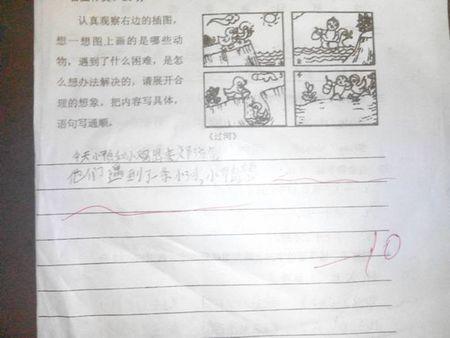 认真观察右边的插图,
想一想图上画的是哪些动
物,遇到了什么困难,是怎
么想办法解决的,请展开合
理的想象,把内容写具体,
语句写通顺。
《过河》
今天小鸭和小鸡
他们遇到了一条小河,小鸭
-10